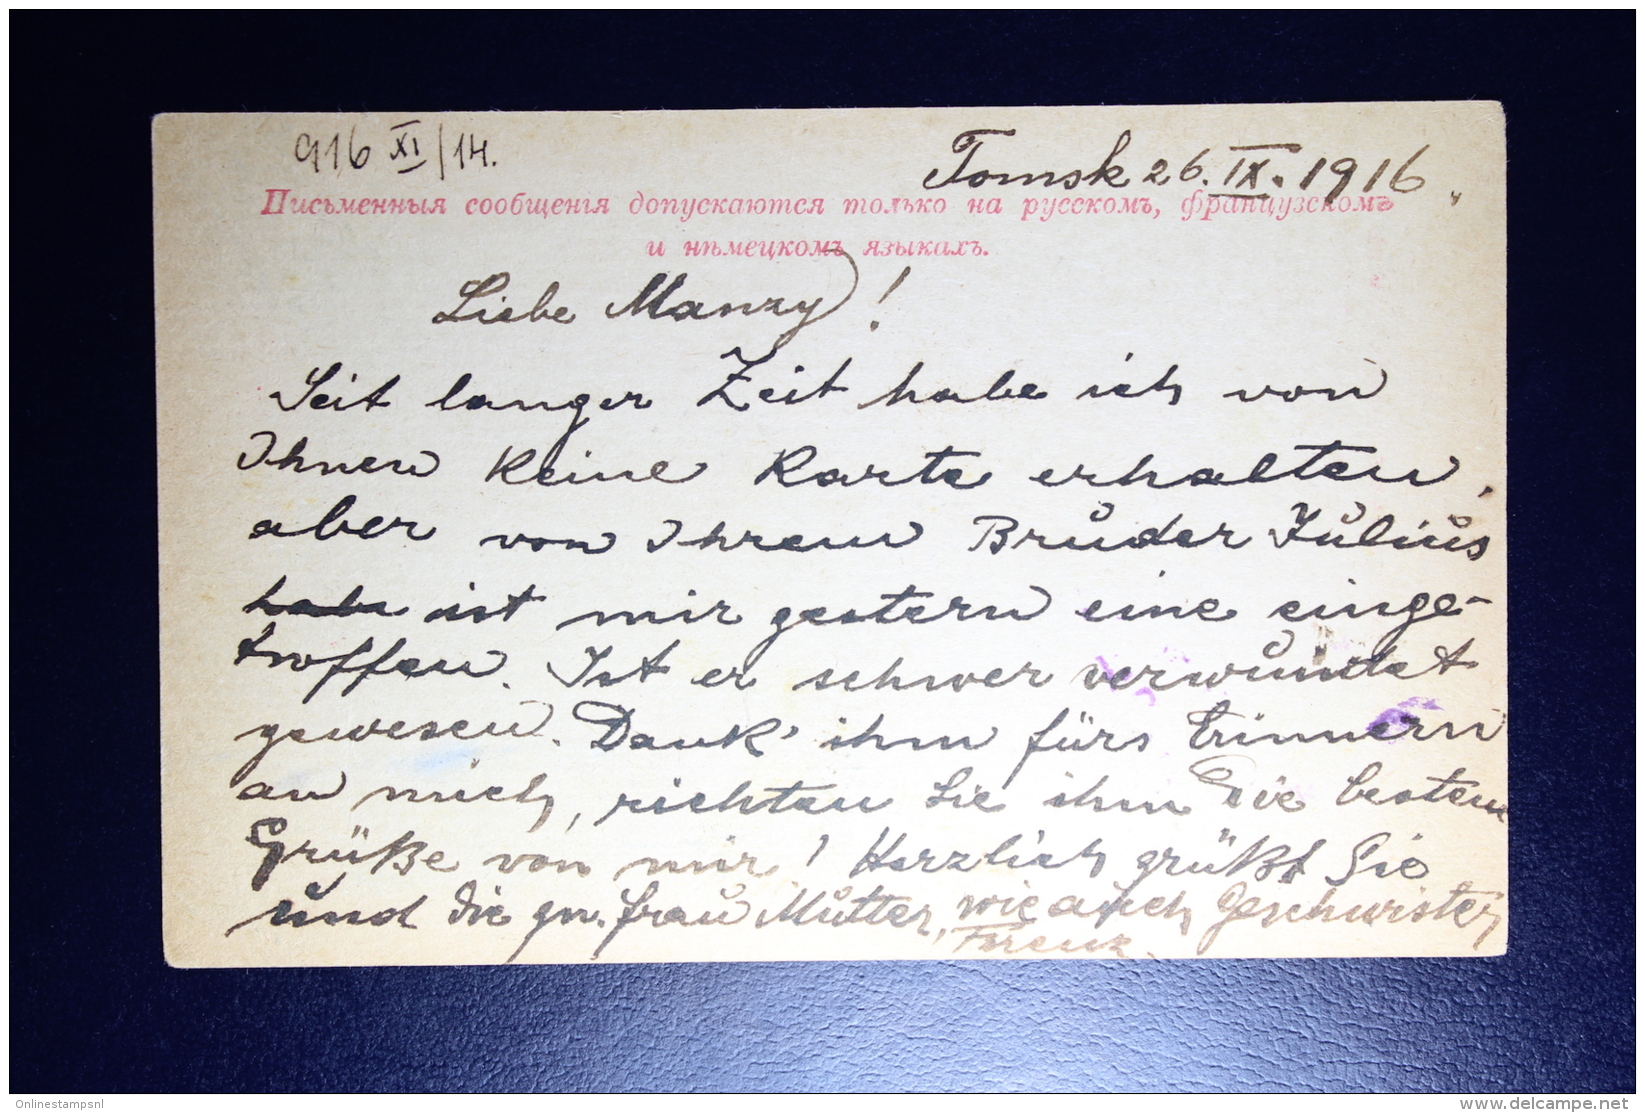 916 XI/14.
Tomsk 26. IX. 1916.
Письменныя сообщенія допускаются только на русскомъ, французскомъ
и нѣмецкомъ языкахъ.
Liebe Manzy!
Seit langer Zeit habe ich von
Ihnen keine Karte erhalten,
aber von Ihrem Bruder Julius
habe ist mir gestern eine einge-
troffen. Ist er schwer verwundet
gewesen. Dank' ihm fürs Erinnern
an mich, richten Sie ihm die besten
Grüße von mir! Herzlich grüßt Sie
und die gn. Frau Mutter, wie auch Geschwister
Ferenz
Onlinestampsnl
www.delcampe.net